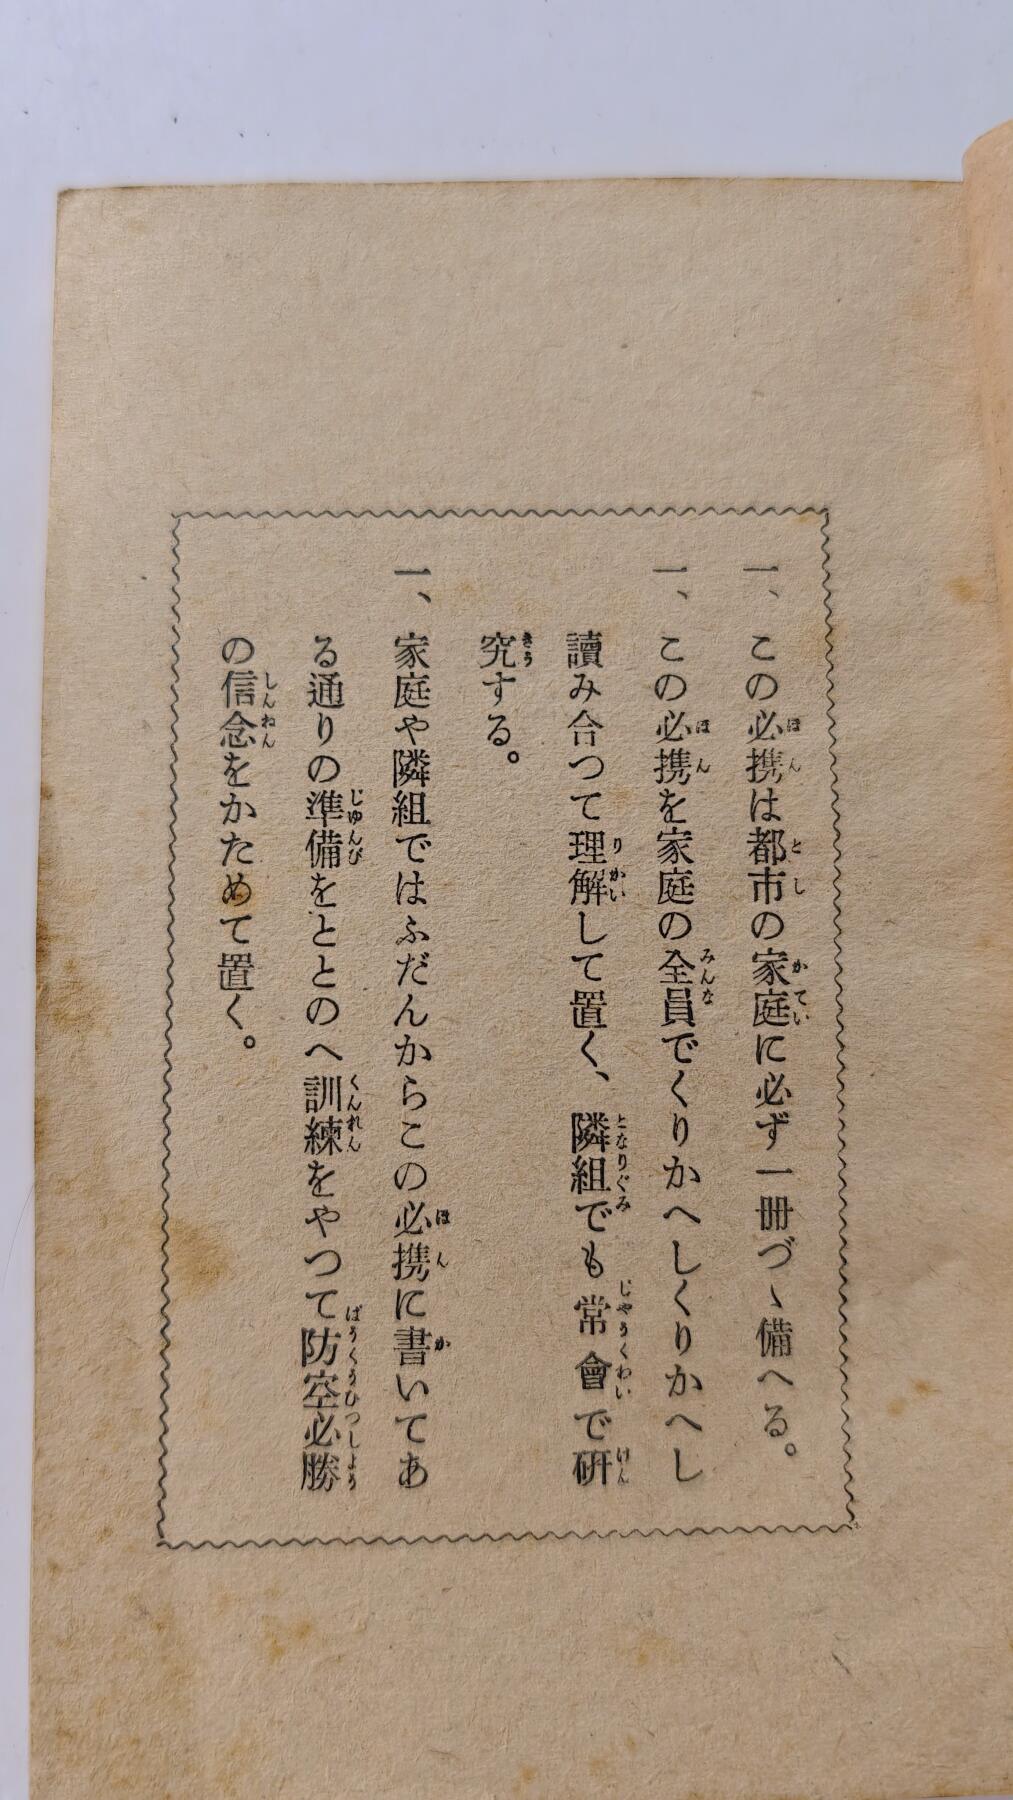 一、この必携は都市の家庭に必ず一冊づゝ備へる。
一、この必携を家庭の全員でくりかへしくりかへし
讀み合つて理解して置く、隣組でも常會で研
究する。
一、家庭や隣組ではふだんからこの必携に書いてあ
る通りの準備をととのへ訓練をやつて防空必勝
の信念をかためて置く。